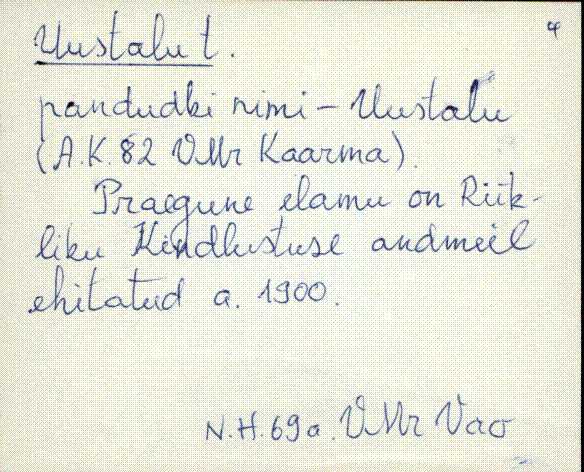 4
Uustalu t.
pandudki nimi – Uustalu
(A.K. 82 VMr Kaarma).
Praegune elamu on Riik-
liku Kindlustuse andmeil
ehitatud a. 1900.
N.H. 69a. VMr Vao